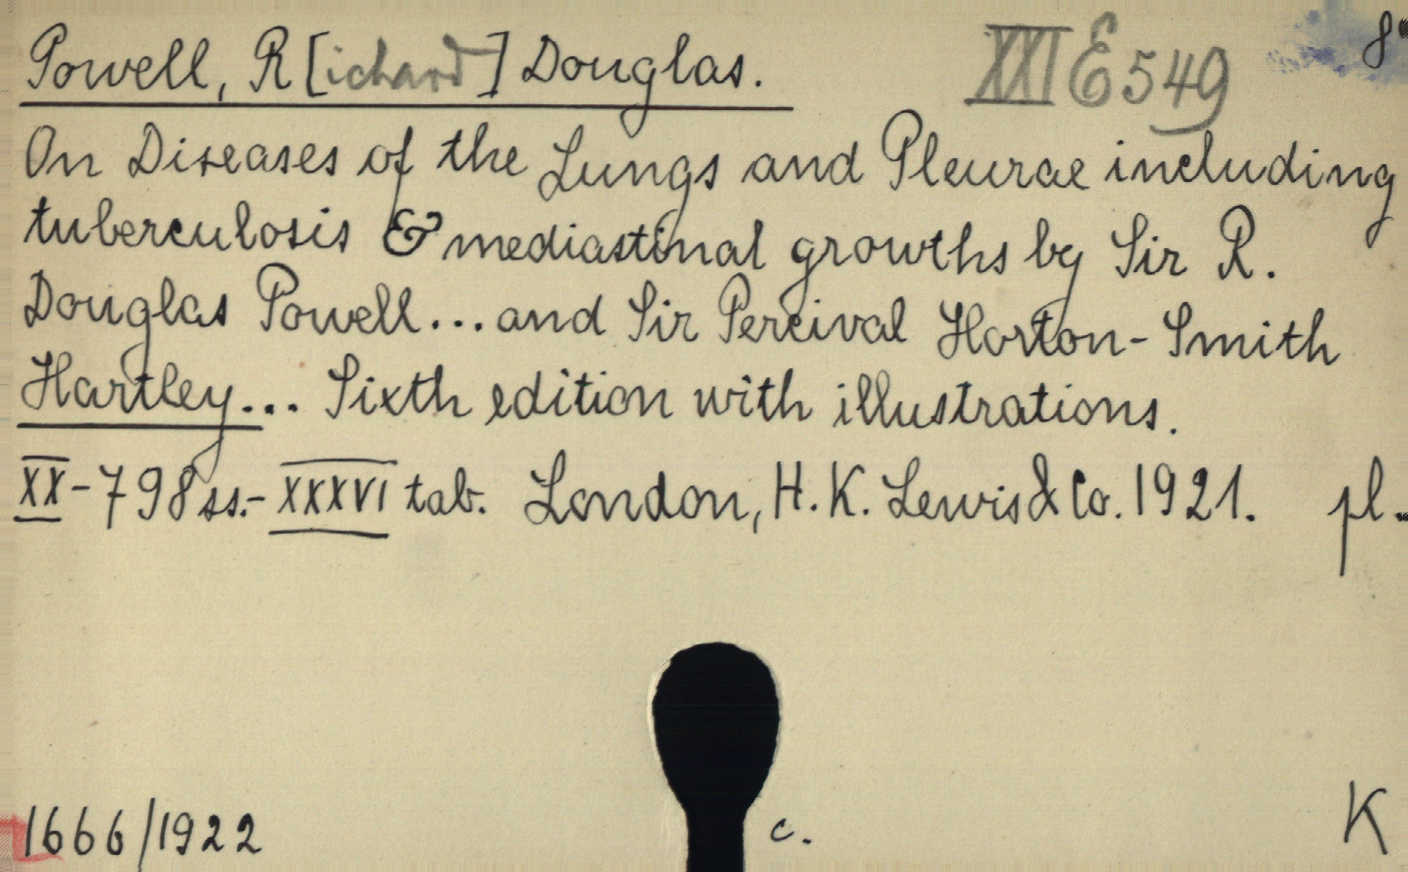 Powell, R[ichard] Douglas. XXI E 549 8°
On Diseases of the Lungs and Pleurae including
tuberculosis & mediastinal growths by Sir R.
Douglas Powell... and Sir Percival Horton-Smith
Hartley... Sixth edition with illustrations.
XX-798 ss.- XXXVI tab. London, H. K. Lewis & Co. 1921. pl.
1666/1922 c. K